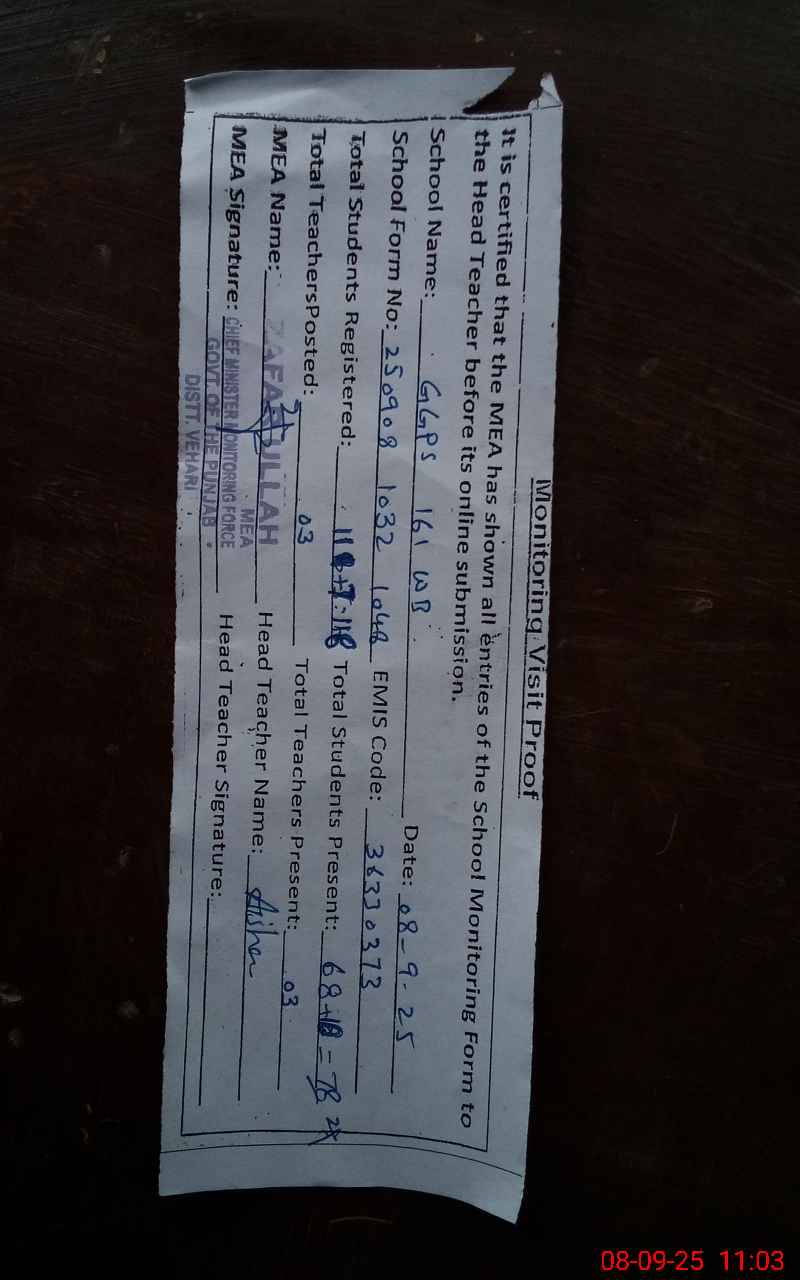 Monitoring Visit Proof
It is certified that the MEA has shown all entries of the School Monitoring Form to
the Head Teacher before its online submission.
School Name: GGPS 161 WB Date: 08-9-25
School Form No: 250908 1032 1048 EMIS Code: 36330373
Total Students Registered: Total Students Present: 68+10=78
Total TeachersPosted: 03 Total Teachers Present: 03
MEA Name: ZAFARULLAH Head Teacher Name: Aisha
MEA
MEA Signature: CHIEF MINISTER MONITORING FORCE Head Teacher Signature:
GOVT. OF THE PUNJAB
DISTT. VEHARI
08-09-25 11:03